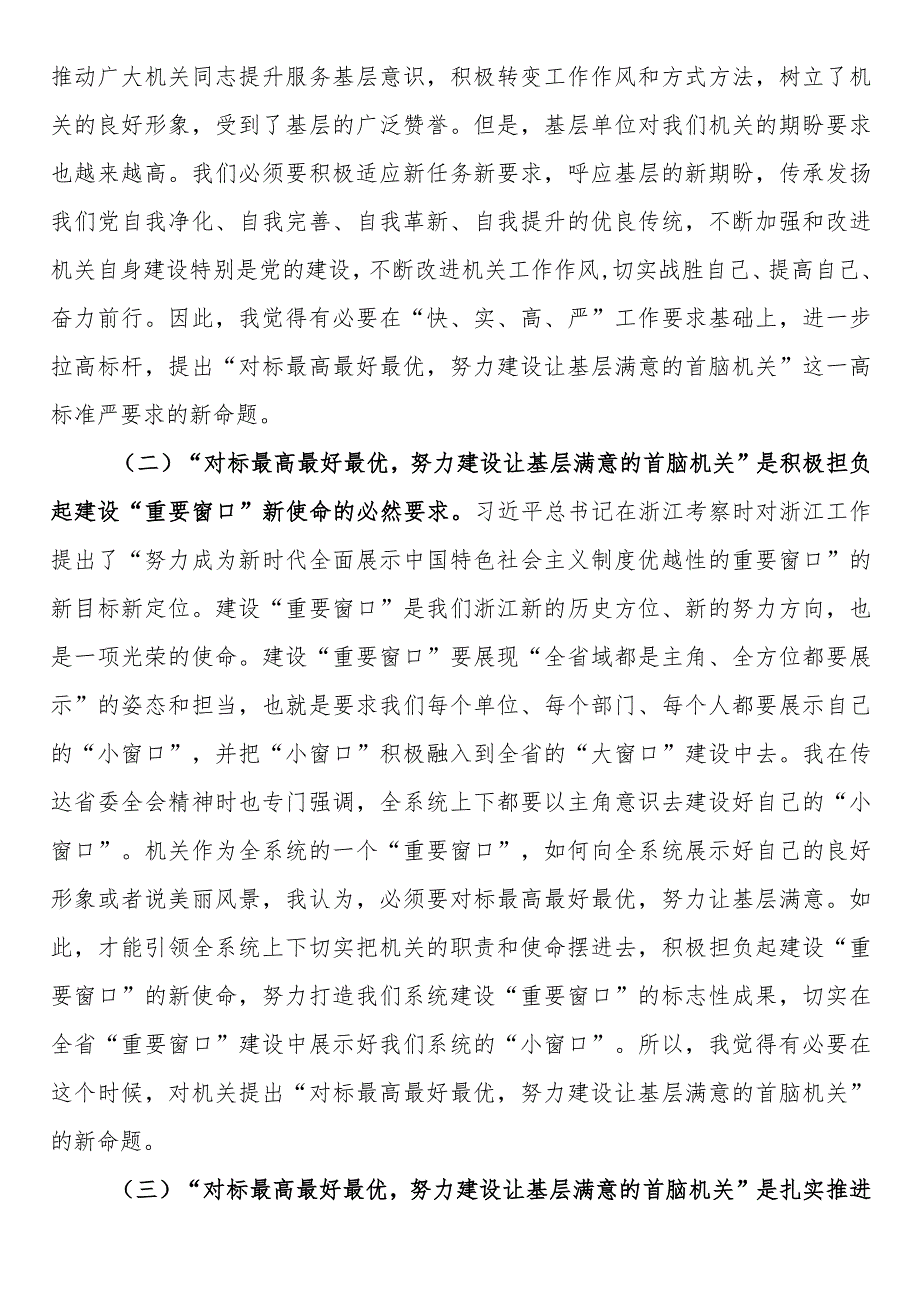 推动广大机关同志提升服务基层意识，积极转变工作作风和方式方法，树立了机
关的良好形象，受到了基层的广泛赞誉。但是，基层单位对我们机关的期盼要求
也越来越高。我们必须要积极适应新任务新要求，呼应基层的新期盼，传承发扬
我们党自我净化、自我完善、自我革新、自我提升的优良传统，不断加强和改进
机关自身建设特别是党的建设，不断改进机关工作作风，切实战胜自己、提高自己、
奋力前行。因此，我觉得有必要在“快、实、高、严”工作要求基础上，进一步
拉高标杆，提出“对标最高最好最优，努力建设让基层满意的首脑机关”这一高
标准严要求的新命题。
（二）“对标最高最好最优，努力建设让基层满意的首脑机关”是积极担负
起建设“重要窗口”新使命的必然要求。习近平总书记在浙江考察时对浙江工作
提出了“努力成为新时代全面展示中国特色社会主义制度优越性的重要窗口”的
新目标新定位。建设“重要窗口”是我们浙江新的历史方位、新的努力方向，也
是一项光荣的使命。建设“重要窗口”要展现“全省域都是主角、全方位都要展
示”的姿态和担当，也就是要求我们每个单位、每个部门、每个人都要展示自己
的“小窗口”，并把“小窗口”积极融入到全省的“大窗口”建设中去。我在传
达省委全会精神时也专门强调，全系统上下都要以主角意识去建设好自己的“小
窗口”。机关作为全系统的一个“重要窗口”，如何向全系统展示好自己的良好
形象或者说美丽风景，我认为，必须要对标最高最好最优，努力让基层满意。如
此，才能引领全系统上下切实把机关的职责和使命摆进去，积极担负起建设“重
要窗口”的新使命，努力打造我们系统建设“重要窗口”的标志性成果，切实在
全省“重要窗口”建设中展示好我们系统的“小窗口”。所以，我觉得有必要在
这个时候，对机关提出“对标最高最好最优，努力建设让基层满意的首脑机关”
的新命题。
（三）“对标最高最好最优，努力建设让基层满意的首脑机关”是扎实推进